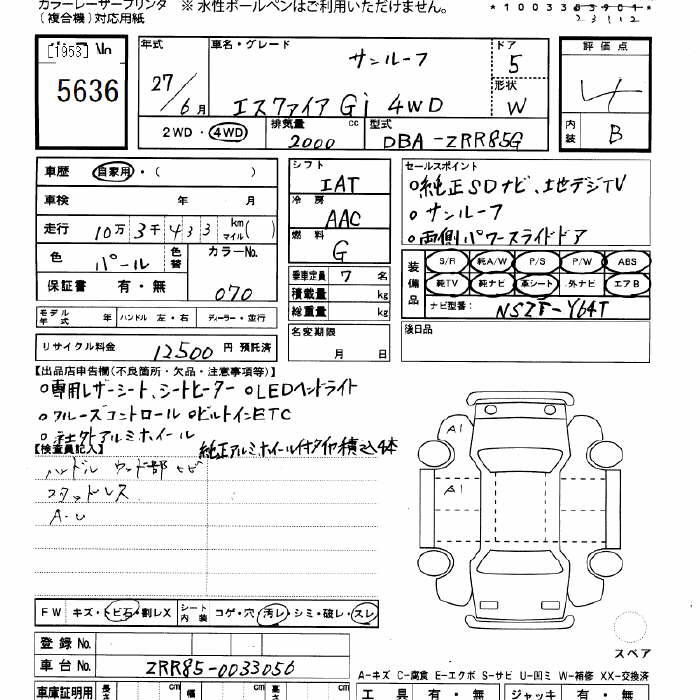 カラーレーザープリンタ ※ 水性ボールペンはご利用いただけません。
(複合機)対応用紙
[1953]
5636
年式 27/6月
車名・グレード サンルーフ
エスクァイア Gi 4WD
ドア 5
形状 W
評価点 4
内装 B
2WD・4WD 排気量 2000 cc 型式 DBA-ZRR85G
車歴 自家用・( )
車検 年 月
走行 10万3千433 km マイル( )
色 パール 色替 カラーNo. 070
保証書 有・無
モデル年式 年 ハンドル 左・右 ディーラー・並行
リサイクル料金 12500円 預託済
シフト IAT
冷房 AAC
燃料 G
乗車定員 7 名
積載量 kg
総重量 kg
名変期限
月 日
セールスポイント
○純正SDナビ、地デジTV
○サンルーフ
○両側パワースライドドア
装備品 S/R 純A/W P/S P/W ABS
純TV 純ナビ 革シート 外ナビ エアB
ナビ型番: NSZT-Y64T
後日品
【出品店申告欄(不良箇所・欠品・注意事項等)】
○専用レザーシート、シートヒーター ○LEDヘッドライト
○クルーズコントロール ○ビルトインETC
○社外アルミホイール
純正アルミホイール付タイヤ積込4本
【検査員記入】
ハンドル ウッド部ヒビ
スタッドレス
A・U
A1
A1
FW キズ・トビ石・割レX シート内装 コゲ・穴・汚レ・シミ・破レ・スレ
スペア
登録No.
車台No. ZRR85-0033056
A-キズ C-腐食 E-エクボ S-サビ U-凹ミ W-補修 XX-交換済
車庫証明用 長さ cm 幅 cm 高さ cm
工具 有・無 ジャッキ 有・無